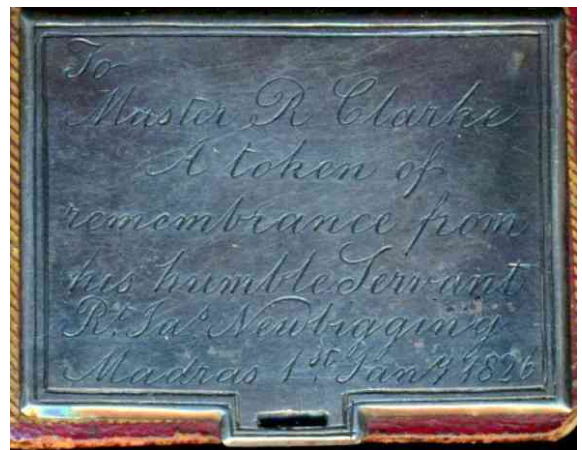 To
Master R Clarke
A token of
remembrance from
his humble Servant
Rt. Jas. Newbigging
Madras 1st. Jany 1826